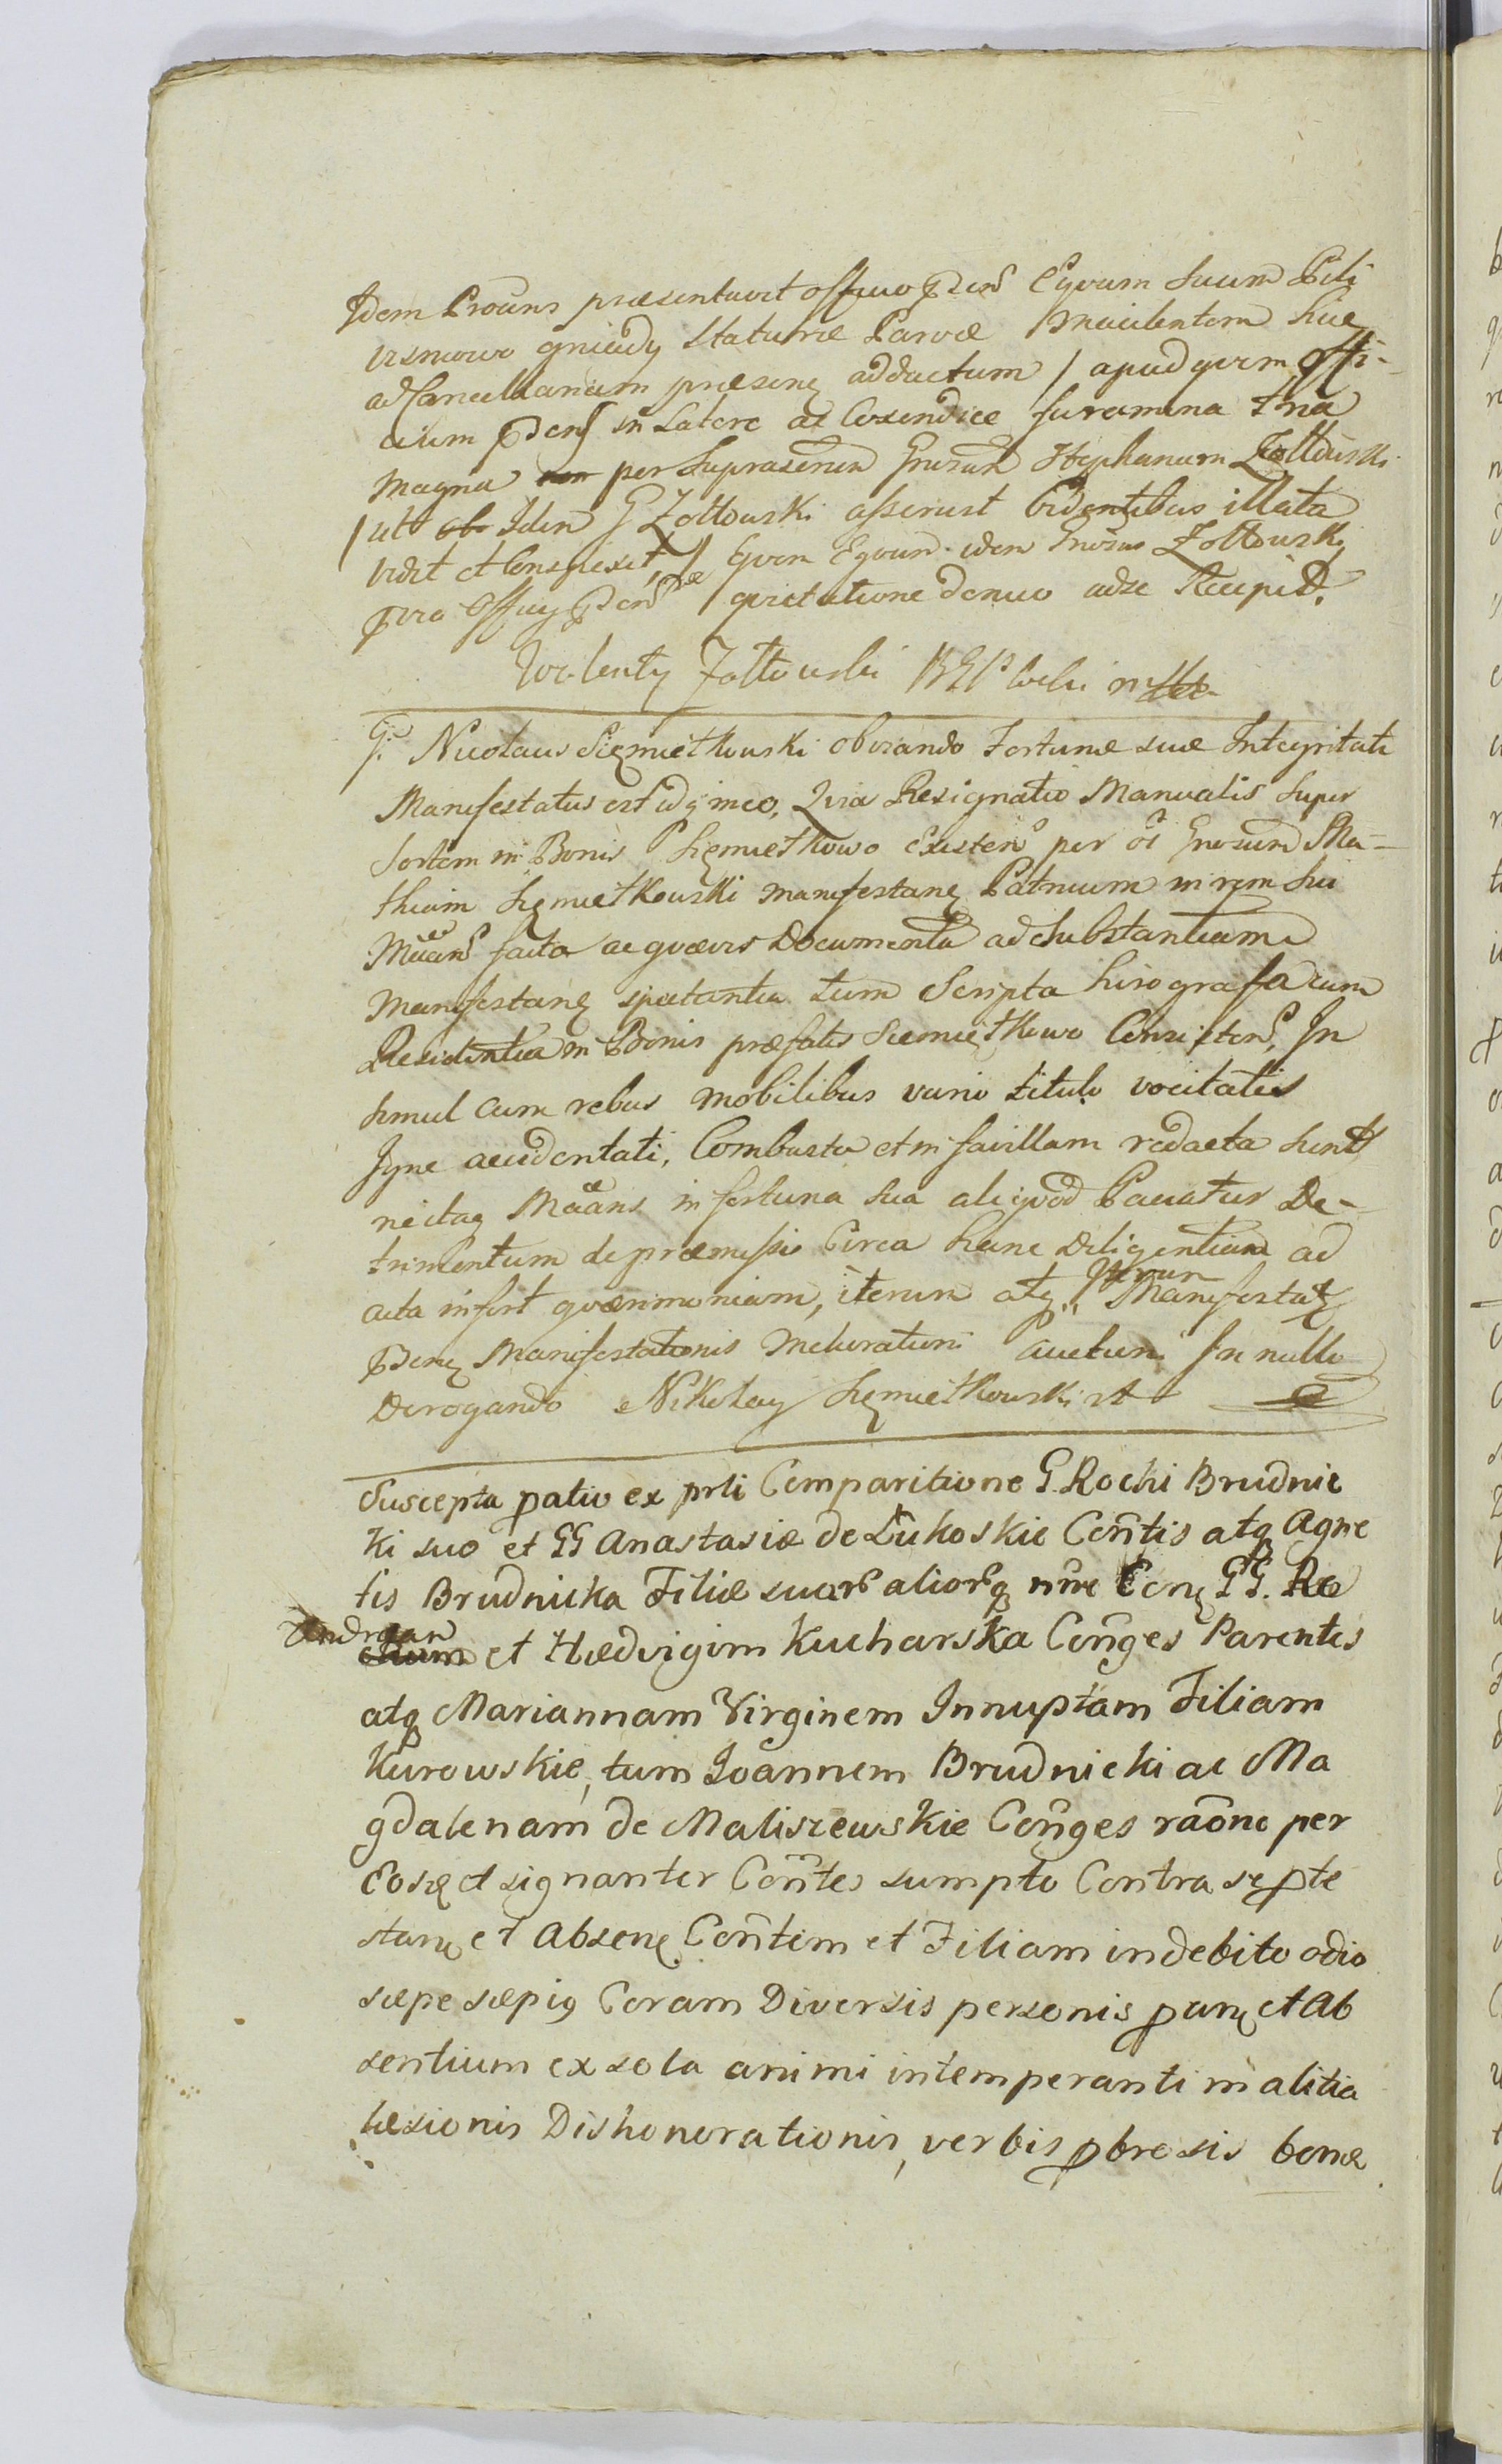 Idem Proans præsentavit offico Pnti Equum suum Pili
wsnowo gniady Staturæ Parvæ Macilentem huc
ad Cancellariam præsenę adductum / apud quem offi-
cium Pdens in Latere ac Coxendice foramina tria
magna per Suprascrtm Gnrosum Stephanum Zołtowski
/ utt Idem G Zołtowski asserust bidentibus illata
vidit et Conspexit, / Quem Equum idem Gnrosus Zołtowski
pro Offici Pdens quietatione denuo ad se Recepit.
Walenty Zołtowski
G. Nicolaus Sięmietkowski obviando Fortunæ suæ Integritati
Manifestatus est idq ineo, Quia Resignatio Manualis super
Sortem in Bonis Sięmietkowo Existen per oi Gnrosum Ma-
thiam Sięmietkowski manifestanę Patruum in rem sui
Maans facta ac quævis Documenta ad Substantiam
Manifestanę spectantia tum Scripta hirografa cum
Residentia in Bonis præfatis Siemietkowo Consisten, In
simul cum rebus mobilibus vario titulo vocitatis
Igne accidentali, Combusta et in favillam redacta sunt
ne itaq Maans in fortuna sua aliquod Paciatur De-
trimentum de præmissis Circa hanc Diligentiam ad
acta infert quærimoniam, iterum atq Iterum Manifestat
Penę Manifestationis Melioratium auctum In nullo
Derogando Nikolay Sięmietkowski
Suscepta patio ex prti Comparitione G. Rochi Brudnic
ki suo et GG Anastasiæ de Łukoskie Contis atq Agne
tis Brudnicka Filiæ suar aliorq nrne Conę GG.
Andream et Hædvigim Kucharska Conges Parentes
atq Mariannam Virginem Innuptam Filiam
Kurowskie, tum Joannem Brudnicki ac Ma
gdalenam de Maliszewskie Conges raone per
Eosd et signanter Contes sumpto Contra se prote
stanę et Absenę Contem et Filiam indebito odio
sæpe sæpiq Coram Diversis personis panę et Ab
sentium ex sola animi intemperanti malitia
læsionis Dishonorationis, verbis pbrosis bonæ